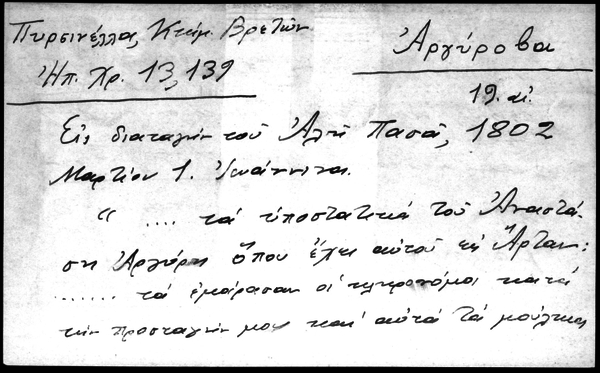 Πυρσινέλλας, Κτήμ. Βρετών
Ἠπ. Χρ. 13, 139
Ἀργύροβα
19. αἰ.
Εἰς διαταγὴν τοῦ Ἀλῆ Πασᾶ, 1802
Μαρτίου 1. Ἰωάννινα.
“ .... τὰ ὑποστατικὰ τοῦ Ἀναστά-
ση Ἀργύρη ὅπου ἔχει αὐτοῦ εἰς Ἄρταν:
....... τὰ ἐμοίρασαν οἱ κληρονόμοι κατὰ
τὴν προσταγήν μου καὶ αὐτὰ τὰ μούλκια